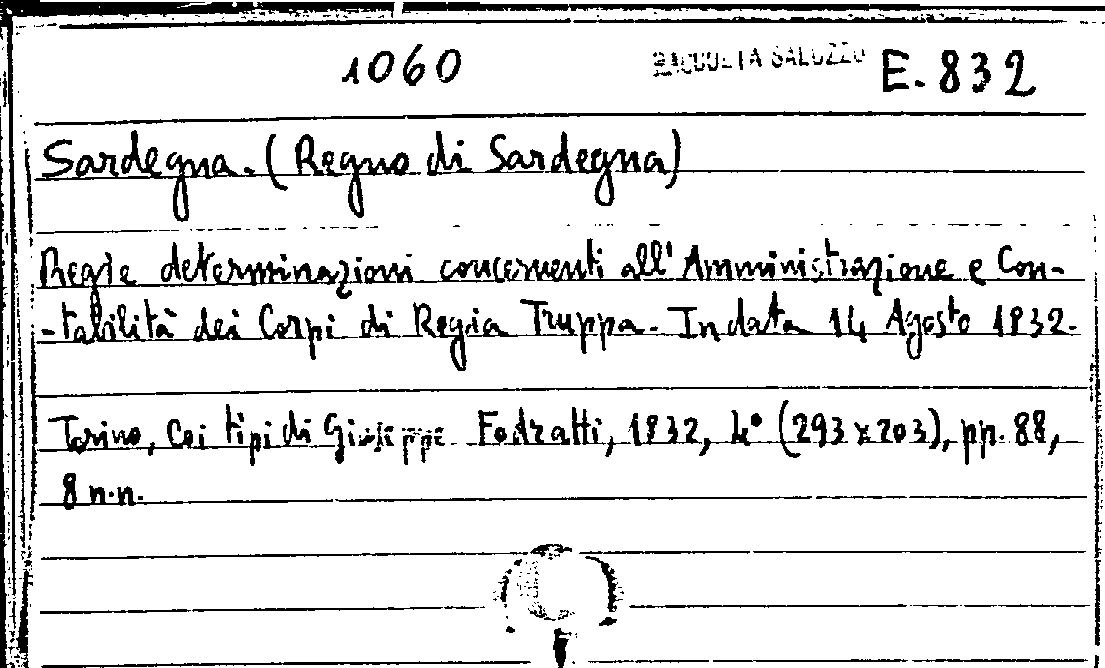 1060 RACCOLTA SALUZZO E. 832
Sardegna. (Regno di Sardegna)
Regie determinazioni concernenti all'Amministrazione e Con-
-tabilità dei Corpi di Regia Truppa. In data 14 Agosto 1832.
Torino, Coi tipi di Giuseppe Fodratti, 1832, 4° (293x203), pp. 88,
8 n.n.